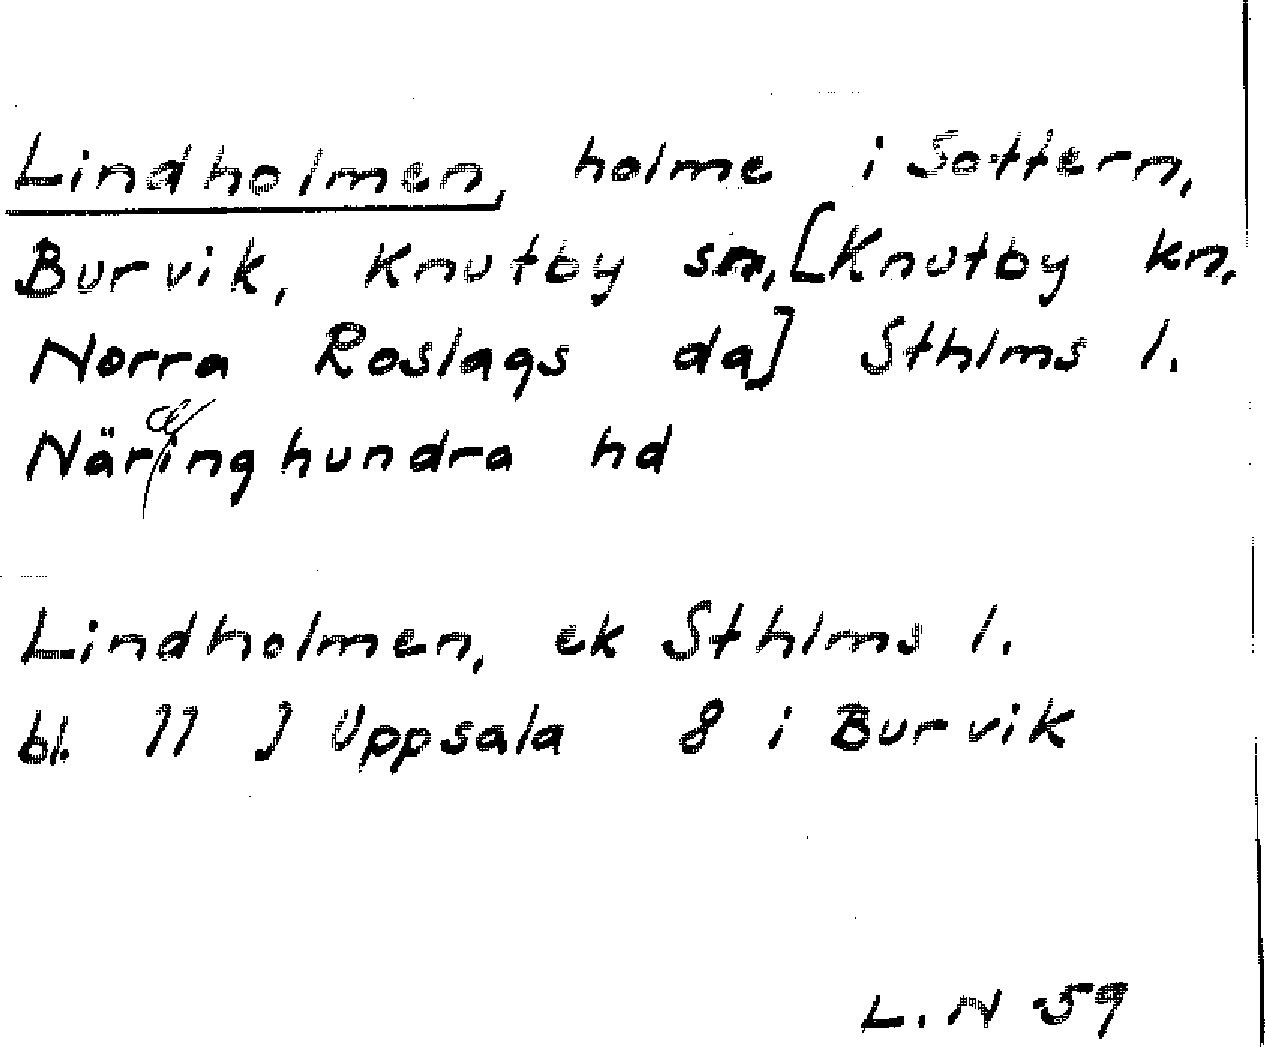 Lindholmen, holme i Sottern,
Burvik, Knutby sn, [Knutby kn,
Norra Roslags da] Sthlms l.
Närdinghundra hd
Lindholmen, ek Sthlms l.
bl. 11 J Uppsala 8 i Burvik
L. N 59